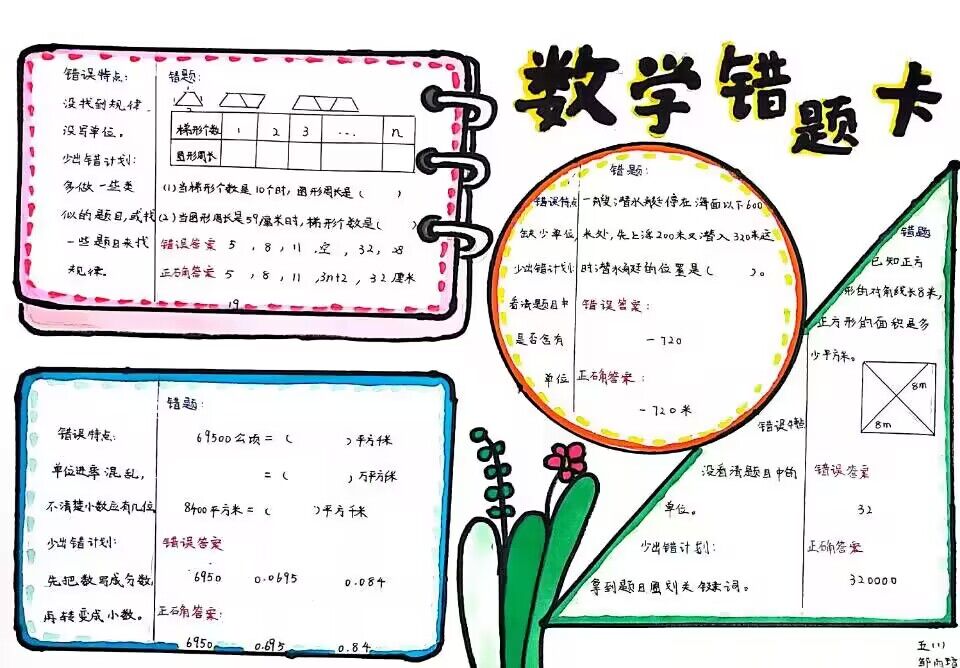 数学错题卡
错误特点:
没找到规律
没写单位。
少出错计划:
多做一些类
似的题目,或找
一些题目来找
规律。
错题:
梯形个数 1 2 3 ... n
图形周长
(1)当梯形个数是10个时,图形周长是( )
(2)当图形周长是59厘米时,梯形个数是( )
错误答案 5,8,11,空,32,
正确答案 5,8,11,3n+2,32厘米
19
错题:
错误特点
缺少单位
少出错计划
看清题目中
是否含有
单位
一艘潜水艇停在海面以下600
米处,先上浮200米又潜入320米这
时潜水艇的位置是( )。
错误答案:
-720
正确答案:
-720米
错题
已知正方
形的对角线长8米,
正方形的面积是多
少平方米。
8m
8m
错误特点
没看清题目中的
单位。
少出错计划:
拿到题目圈划关键词。
错误答案
32
正确答案
320000
错误特点:
单位进率混乱,
不清楚小数应有几位
少出错计划:
先把数写成分数,
再转变成小数。
错题:
69500公顷=( )平方千米
=( )万平方米
8400平方米=( )平方千米
错误答案
6950 0.0695 0.084
正确答案:
6950 0.695 0.84
五(1)